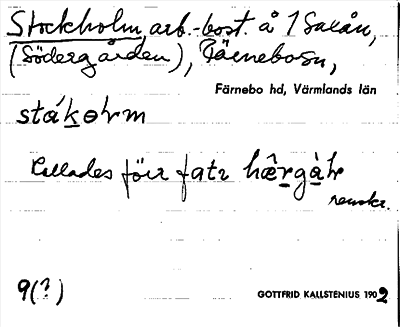 Stockholm, arb.-bost. å 1 Saxån,
(Södergården), Färnebosn,
Färnebo hd, Värmlands län
stákɵrm
Kallades föir fatr hærgàr
renskr.
9(?)
GOTTFRID KALLSTENIUS 1902